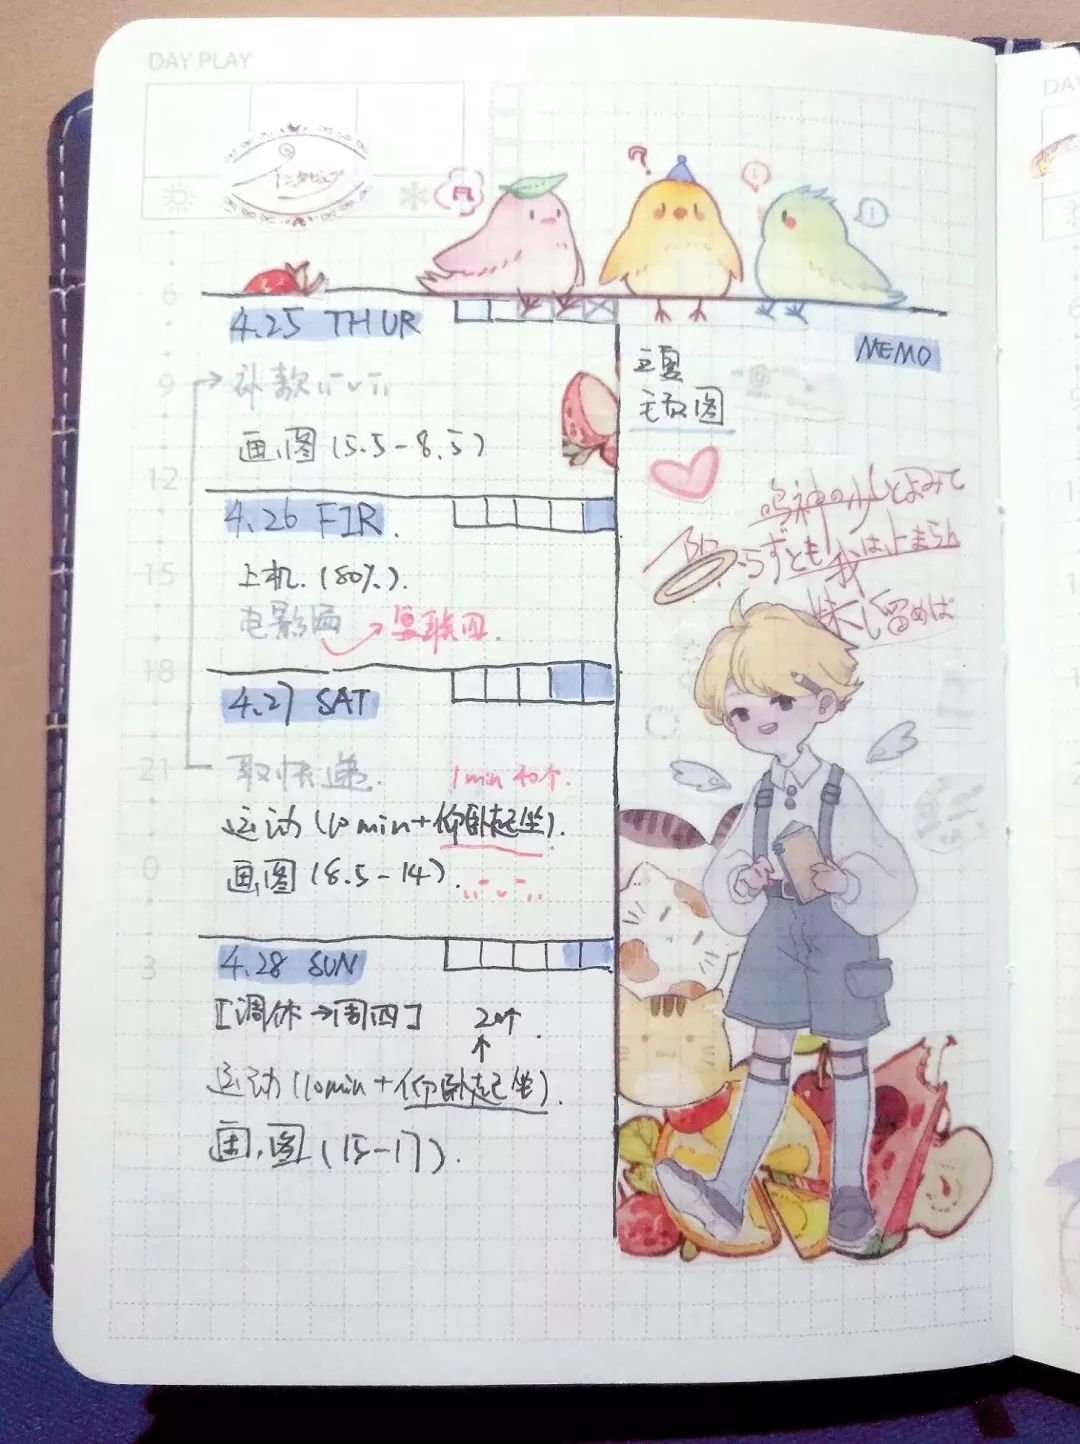 DAY PLAY
6
4.25 THUR
9
补款
画图(5.5-8.5)
12
4.26 FIR.
15
上机.(80%).
电影
复联四.
18
4.27 SAT
21
取快递.
1min 40个.
运动(10min+仰卧起坐).
0
画图(8.5-14).
3
4.28 SUN
[调休→周四]
20个.
运动(10min+仰卧起坐).
画图(15-17).
MEMO
立夏
鸣神の少しとよみて
らずとも我は止まらん
妹し留めば